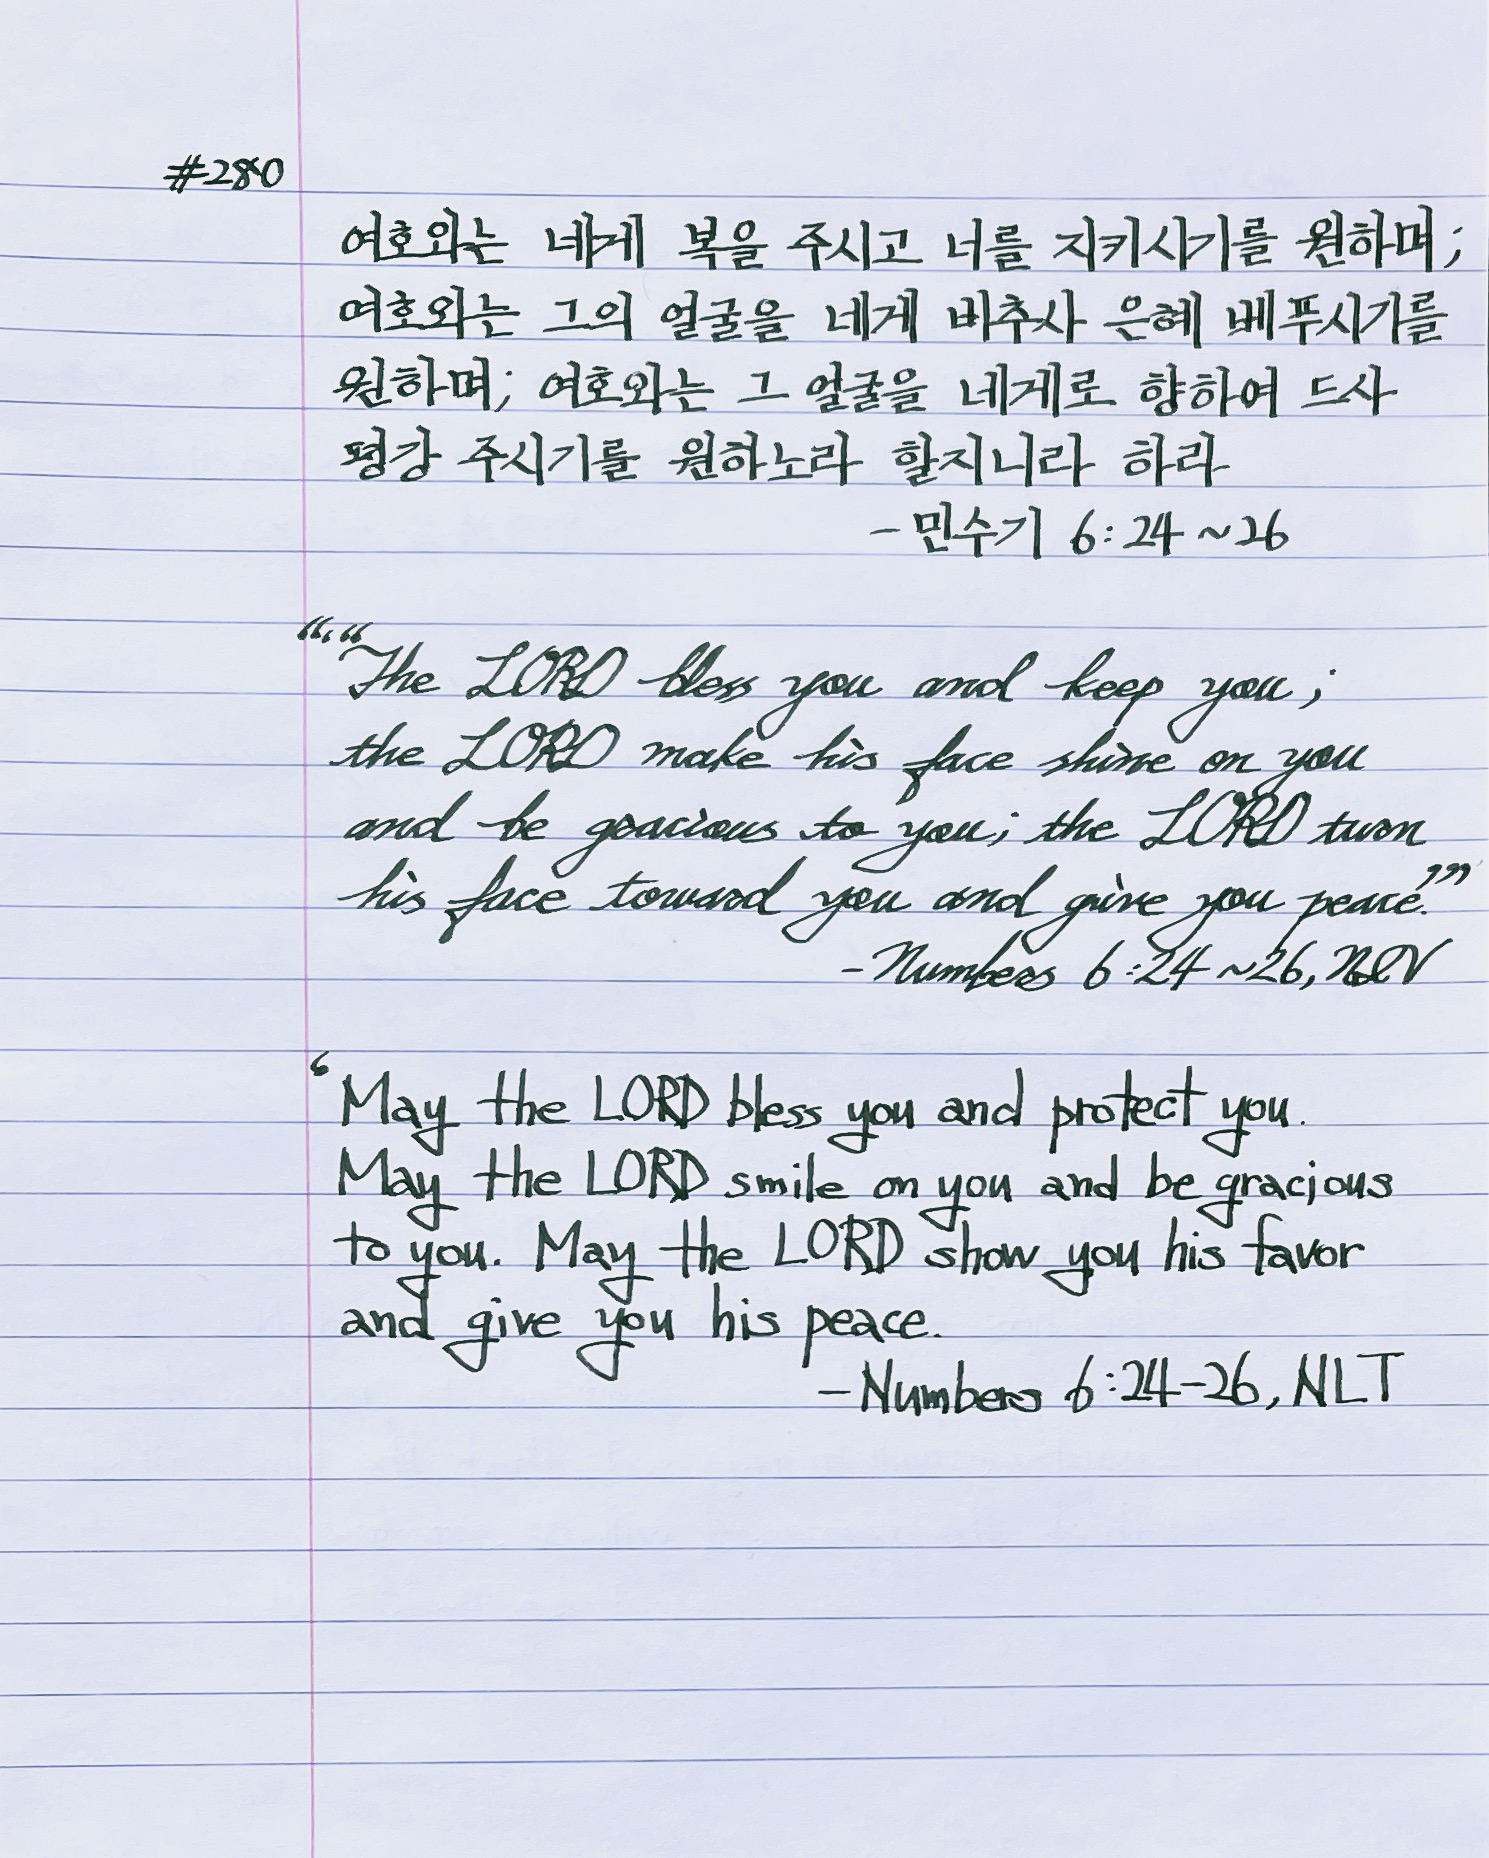 #280
여호와는 네게 복을 주시고 너를 지키시기를 원하며;
여호와는 그의 얼굴을 네게 비추사 은혜 베푸시기를
원하며; 여호와는 그 얼굴을 네게로 향하여 드사
평강 주시기를 원하노라 할지니라 하라
-민수기 6:24~26
“‘“The LORD bless you and keep you;
the LORD make his face shine on you
and be gracious to you; the LORD turn
his face toward you and give you peace.”’”
-Numbers 6:24~26, NIV
‘May the LORD bless you and protect you.
May the LORD smile on you and be gracious
to you. May the LORD show you his favor
and give you his peace.
-Numbers 6:24-26, NLT